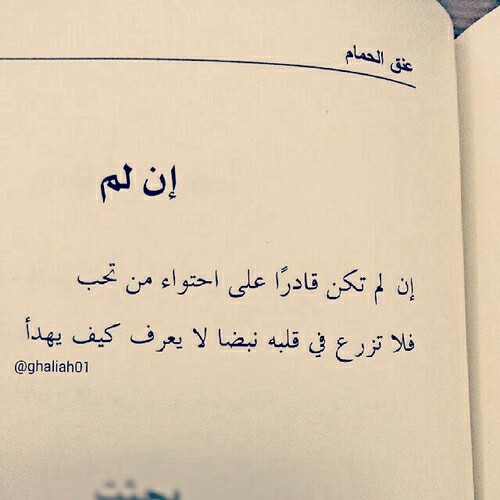 عنق الحمام
إن لم
إن لم تكن قادرًا على احتواء من تحب
فلا تزرع في قلبه نبضا لا يعرف كيف يهدأ
@ghaliah01